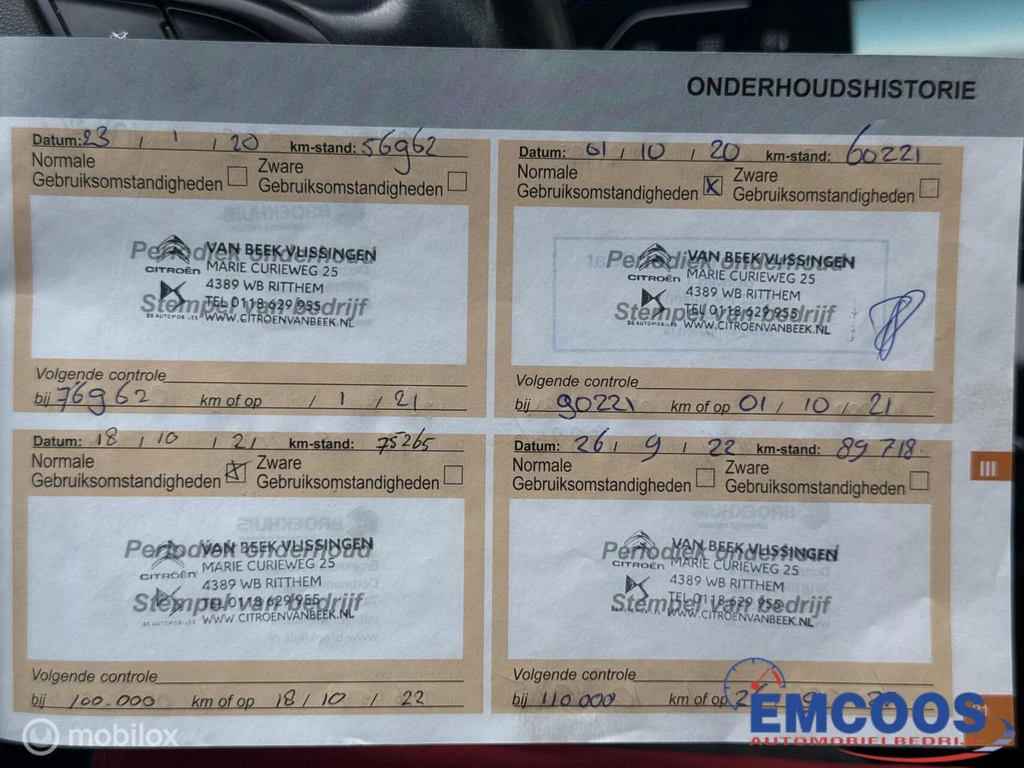 ONDERHOUDSHISTORIE
Datum: 23 / 1 / 20 km-stand: 56962
Normale Gebruiksomstandigheden
Zware Gebruiksomstandigheden
Periodiek onderhoud
Stempel van bedrijf
CITROËN
DS AUTOMOBILES
VAN BEEK VLISSINGEN
MARIE CURIEWEG 25
4389 WB RITTHEM
TEL 0118 629 955
WWW.CITROENVANBEEK.NL
Volgende controle
bij 76962 km of op / 1 / 21
Datum: 01 / 10 / 20 km-stand: 60221
Normale Gebruiksomstandigheden X
Zware Gebruiksomstandigheden
Periodiek onderhoud
Stempel van bedrijf
CITROËN
DS AUTOMOBILES
VAN BEEK VLISSINGEN
MARIE CURIEWEG 25
4389 WB RITTHEM
TEL 0118 629 955
WWW.CITROENVANBEEK.NL
Volgende controle
bij 90221 km of op 01 / 10 / 21
Datum: 18 / 10 / 21 km-stand: 75265
Normale Gebruiksomstandigheden X
Zware Gebruiksomstandigheden
Periodiek onderhoud
Stempel van bedrijf
CITROËN
DS AUTOMOBILES
VAN BEEK VLISSINGEN
MARIE CURIEWEG 25
4389 WB RITTHEM
TEL 0118 629 955
WWW.CITROENVANBEEK.NL
Volgende controle
bij 100.000 km of op 18 / 10 / 22
Datum: 26 / 9 / 22 km-stand: 89718
Normale Gebruiksomstandigheden
Zware Gebruiksomstandigheden
Periodiek onderhoud
Stempel van bedrijf
CITROËN
DS AUTOMOBILES
VAN BEEK VLISSINGEN
MARIE CURIEWEG 25
4389 WB RITTHEM
TEL 0118 629 955
WWW.CITROENVANBEEK.NL
Volgende controle
bij 110000 km of op 26 / 9 /
III
mobilox
EMCOOS
AUTOMOBIELBEDRIJF